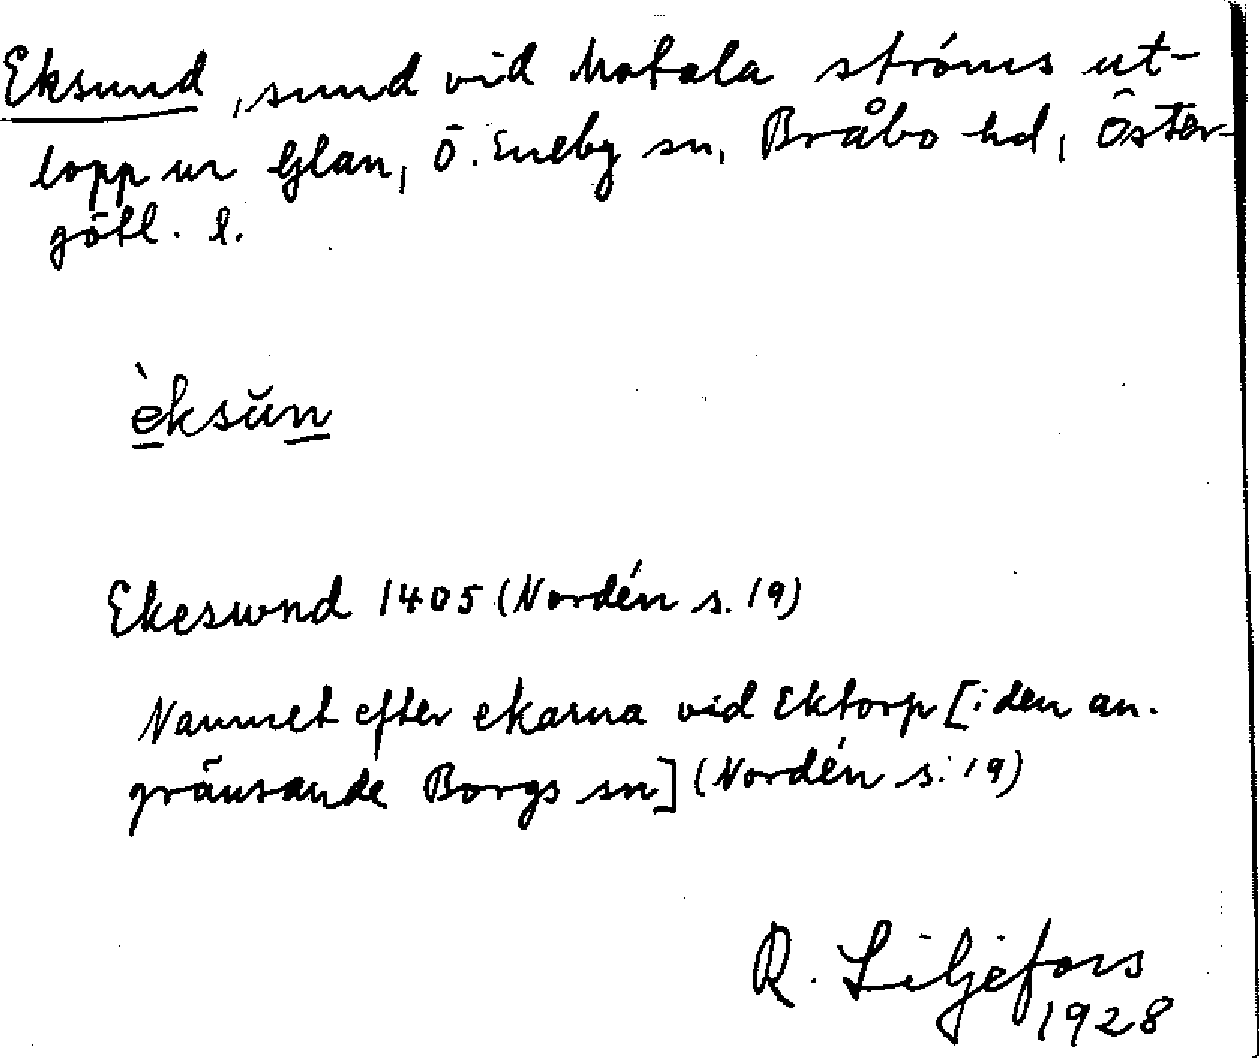 Eksund, sund vid Motala ströms ut-
lopp ur Glan, Ö. Eneby sn, Bråbo hd, Öster-
götl. l.
èksŭn
Ekesund 1405 (Nordén s. 19)
Namnet efter ekarna vid Ektorp [i den an-
gränsande Borgs sn] (Nordén s. 19)
R. Liljefors
1928